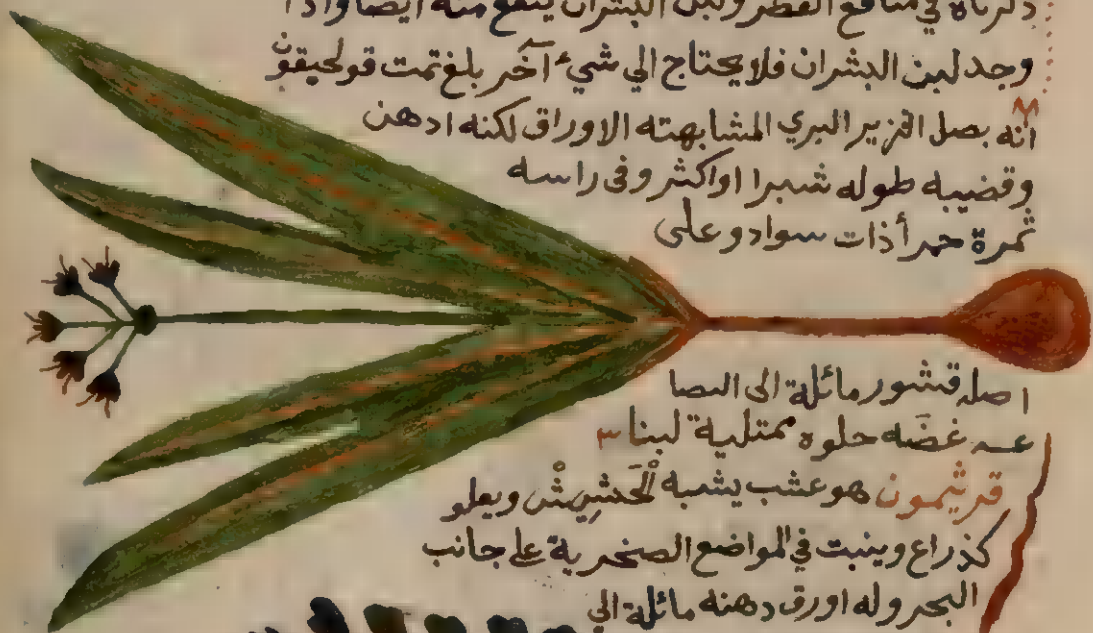 ذكرناه في منافع القطر ولبن البشران ينفع منه ايضا واذا
وجد لبن البشران فلا يحتاج الي شيء آخر بلغ تمت قولحيقون
انه بصل الزير البري المشابهته الاوراق لكنه ادهن
وقضيبه طوله شبرا او اكثر وفى راسه
ثمرة حمرأ ذات سواد وعلى
اصله قشور مائلة الى
غضه حلوه ممتلية لبنا
قرثيمون هو عشب يشبه الْحَشيشْ ويعلو
كذراع وينبت في المواضع الصخرية علے جانب
البحر وله اورق دهنه مائلة الي